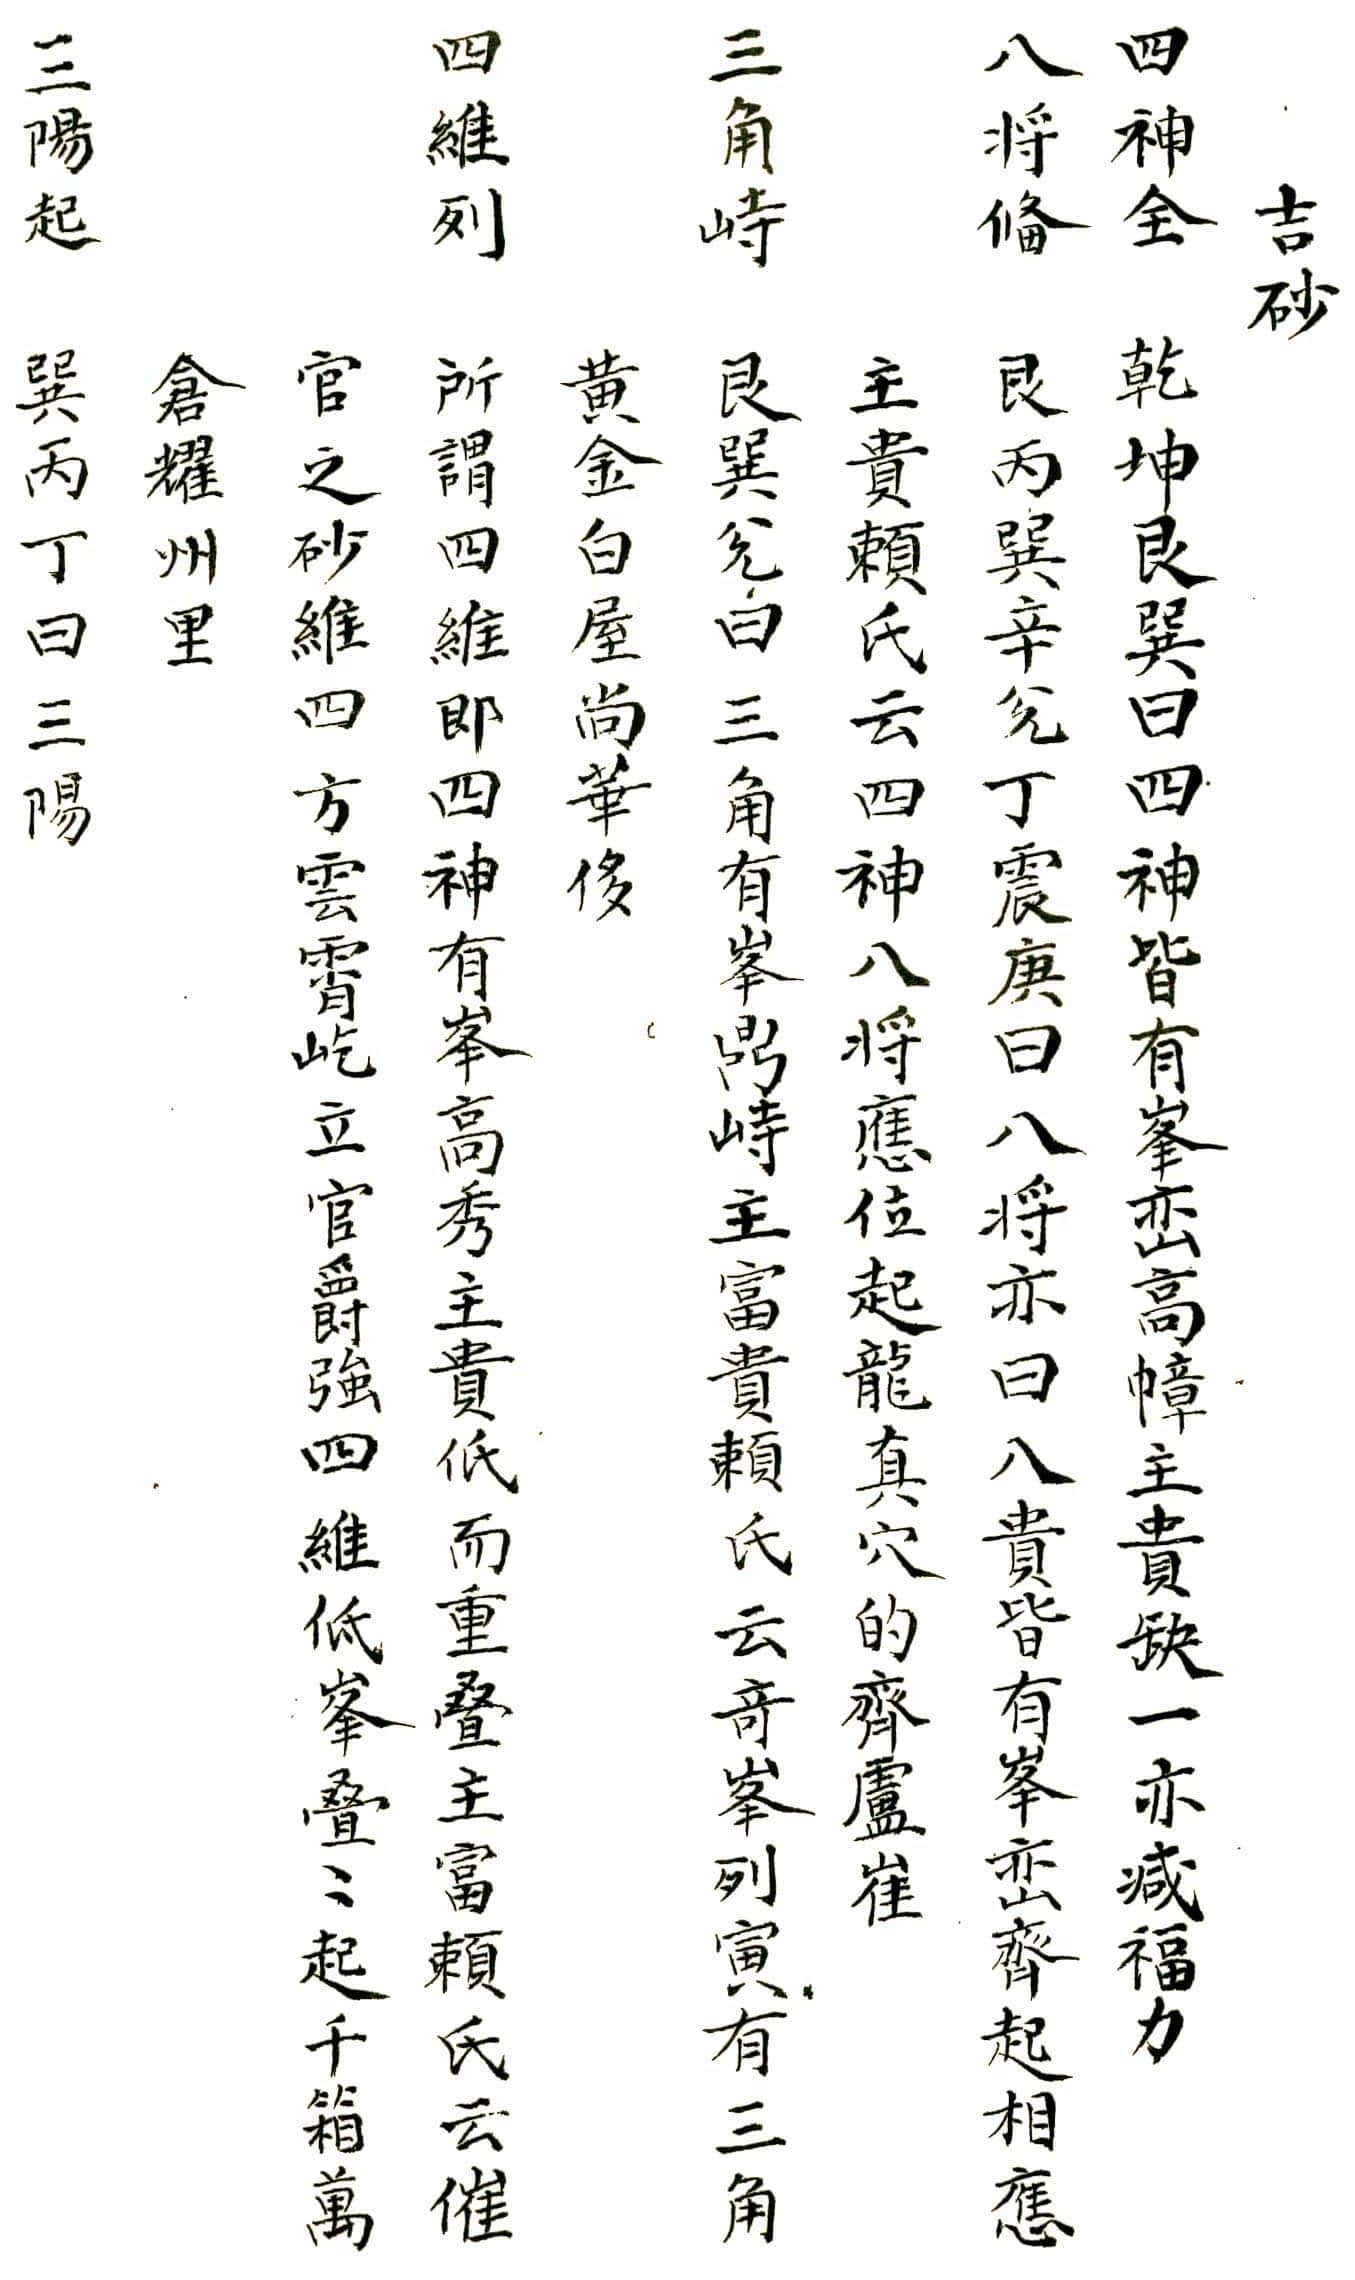 吉砂
四神全 乾坤艮巽曰四神皆有峯峦高幛主貴缺一亦减福力
八将俻 艮丙巽辛兊丁震庚曰八将亦曰八貴皆有峯峦齊起相應
主貴賴氏云四神八将應位起龍真穴的齊盧崔
三角峙 艮巽兊曰三角有峯鼎峙主富貴賴氏云竒峯列寅有三角
黄金白屋尚華侈
四維列 所謂四維即四神有峯高秀主貴低而重叠主富賴氏云催
官之砂維四方雲霄屹立官爵強四維低峯叠〻起千箱萬
倉耀州里
三陽起 巽丙丁曰三陽